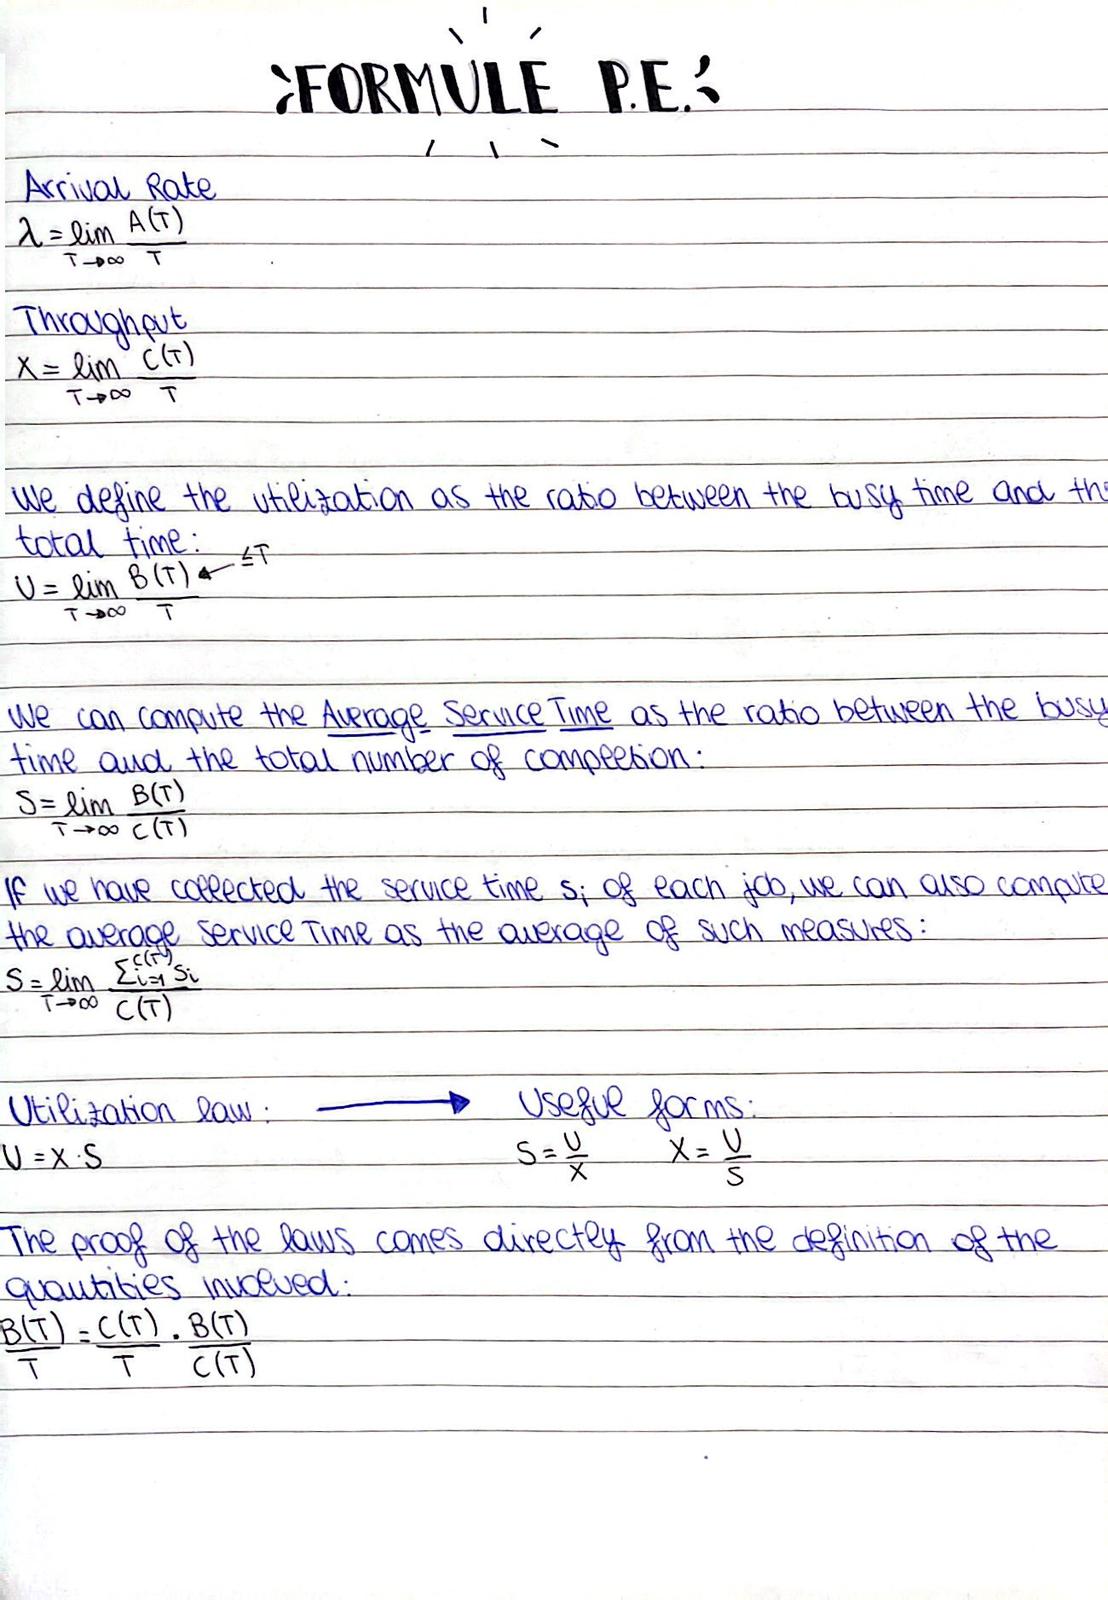 FORMULE P.E.
Arrival Rate
λ = lim T→∞ A(T)/T
Throughput
X = lim T→∞ C(T)/T
We define the utilization as the ratio between the busy time and the
total time:
U = lim T→∞ B(T)/T ← ≤T
We can compute the Average Service Time as the ratio between the busy
time and the total number of completion:
S = lim T→∞ B(T)/C(T)
If we have collected the service time si of each job, we can also compute
the average service Time as the average of such measures:
S = lim T→∞ Σ_{i=1}^{C(T)} si / C(T)
Utilization law: → Useful forms:
U = X · S S = U/X X = U/S
The proof of the laws comes directly from the definition of the
quantities involved:
B(T)/T = C(T)/T · B(T)/C(T)